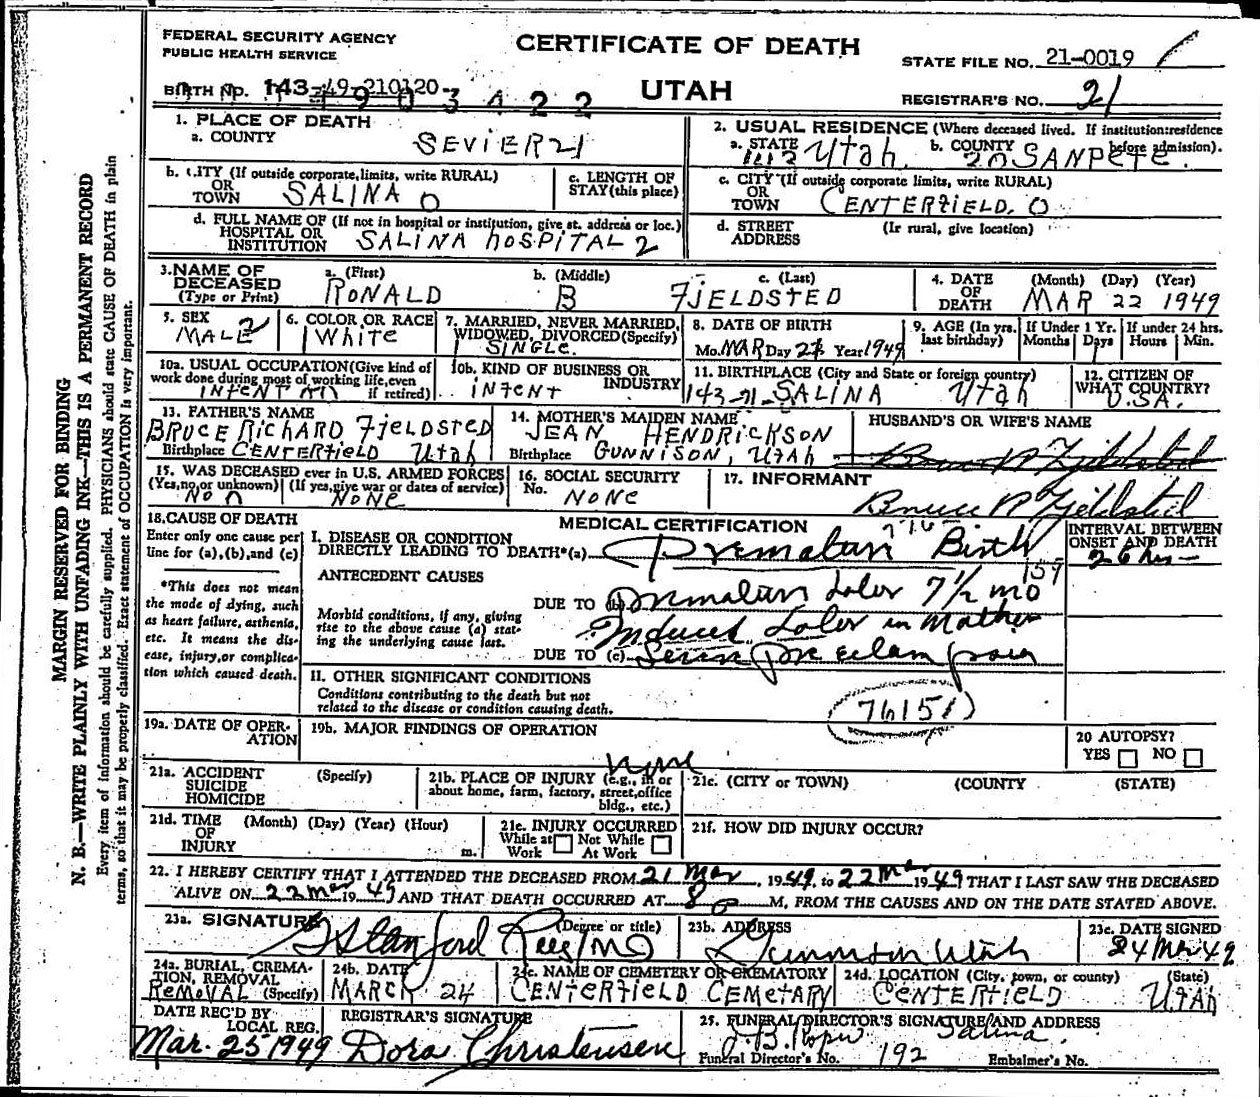 FEDERAL SECURITY AGENCY
PUBLIC HEALTH SERVICE
CERTIFICATE OF DEATH
UTAH
STATE FILE NO. 21-0019
BIRTH No. 143-49-210120
REGISTRAR'S NO. 21
1. PLACE OF DEATH
a. COUNTY SEVIER 21
2. USUAL RESIDENCE (Where deceased lived. If institution:residence before admission).
a. STATE Utah b. COUNTY 20 SANPETE
b. CITY (If outside corporate,limits, write RURAL) OR TOWN SALINA 0
c. LENGTH OF STAY(this place)
c. CITY (If outside corporate limits, write RURAL) OR TOWN CENTERFIELD. 0
d. FULL NAME OF (If not in hospital or institution, give st. address or loc.) HOSPITAL OR INSTITUTION SALINA HOSPITAL 2
d. STREET ADDRESS (If rural, give location)
3. NAME OF DECEASED (Type or Print)
a. (First) RONALD
b. (Middle) B
c. (Last) FJELDSTED
4. DATE OF DEATH (Month) (Day) (Year) MAR 22 1949
5. SEX MALE 2
6. COLOR OR RACE White
7. MARRIED, NEVER MARRIED, WIDOWED, DIVORCED(Specify) SINGLE.
8. DATE OF BIRTH
Mo. MAR Day Year 1949
9. AGE (In yrs. last birthday)
If Under 1 Yr. Months Days 1
If under 24 hrs. Hours Min.
10a. USUAL OCCUPATION(Give kind of work done during most of working life,even if retired) INFENT
10b. KIND OF BUSINESS OR INDUSTRY INFENT
11. BIRTHPLACE (City and State or foreign country) SALINA Utah
12. CITIZEN OF WHAT COUNTRY? U.S.A.
13. FATHER'S NAME
BRUCE RICHARD FJELDSTED
Birthplace CENTERFIELD Utah
14. MOTHER'S MAIDEN NAME
JEAN HENDRICKSON
Birthplace GUNNISON, UTAH
HUSBAND'S OR WIFE'S NAME
15. WAS DECEASED ever in U.S. ARMED FORCES
(Yes,no,or unknown) (If yes,give war or dates of service)
NO 0 NONE
16. SOCIAL SECURITY No. NONE
17. INFORMANT
Bruce R Fjeldsted
18. CAUSE OF DEATH
Enter only one cause per line for (a),(b),and (c)
MEDICAL CERTIFICATION
INTERVAL BETWEEN ONSET AND DEATH
I. DISEASE OR CONDITION DIRECTLY LEADING TO DEATH*(a) Premature Birth
26 hrs
*This does not mean the mode of dying, such as heart failure, asthenia, etc. It means the disease, injury,or complication which caused death.
ANTECEDENT CAUSES
159
DUE TO (b) Premature Labor 7 1/2 mo
Morbid conditions, if any, giving rise to the above cause (a) stating the underlying cause last.
Induced Labor in Mother
DUE TO (c) Severe pre eclampsia
II. OTHER SIGNIFICANT CONDITIONS
Conditions contributing to the death but not related to the disease or condition causing death.
76151
19a. DATE OF OPERATION
19b. MAJOR FINDINGS OF OPERATION
none
20 AUTOPSY?
YES NO
21a. ACCIDENT SUICIDE HOMICIDE (Specify)
21b. PLACE OF INJURY (e.g., in or about home, farm, factory, street,office bldg., etc.)
21c. (CITY or TOWN) (COUNTY) (STATE)
21d. TIME OF INJURY (Month) (Day) (Year) (Hour) m.
21e. INJURY OCCURRED
While at Work Not While At Work
21f. HOW DID INJURY OCCUR?
22. I HEREBY CERTIFY THAT I ATTENDED THE DECEASED FROM 21 Mar, 1949, to 22 Mar 1949 THAT I LAST SAW THE DECEASED
ALIVE ON 22 Mar 1949 AND THAT DEATH OCCURRED AT 8 p M, FROM THE CAUSES AND ON THE DATE STATED ABOVE.
23a. SIGNATURE (Degree or title)
G Stanford Rees MD
23b. ADDRESS
Gunnison Utah
23c. DATE SIGNED
24 Mar 49
24a. BURIAL, CREMATION, REMOVAL (Specify) REMOVAL
24b. DATE MARCH 24
24c. NAME OF CEMETERY OR CREMATORY
CENTERFIELD CEMETARY
24d. LOCATION (City, town, or county) (State)
CENTERFIELD UTAH
DATE REC'D BY LOCAL REG.
Mar. 25 1949
REGISTRAR'S SIGNATURE
Dora Christensen
25. FUNERAL DIRECTOR'S SIGNATURE AND ADDRESS
Salina.
Funeral Director's No. 192 Embalmer's No.
MARGIN RESERVED FOR BINDING
N. B.—WRITE PLAINLY WITH UNFADING INK—THIS IS A PERMANENT RECORD
Every item of information should be carefully supplied. PHYSICIANS should state CAUSE OF DEATH in plain
terms, so that it may be properly classified. Exact statement of OCCUPATION is very important.